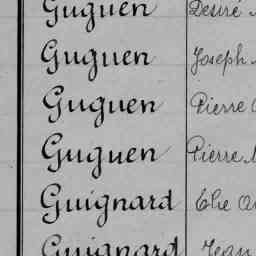 Guguen Désiré
Guguen Joseph
Guguen Pierre
Guguen Pierre
Guignard Elie
Guignard Jean